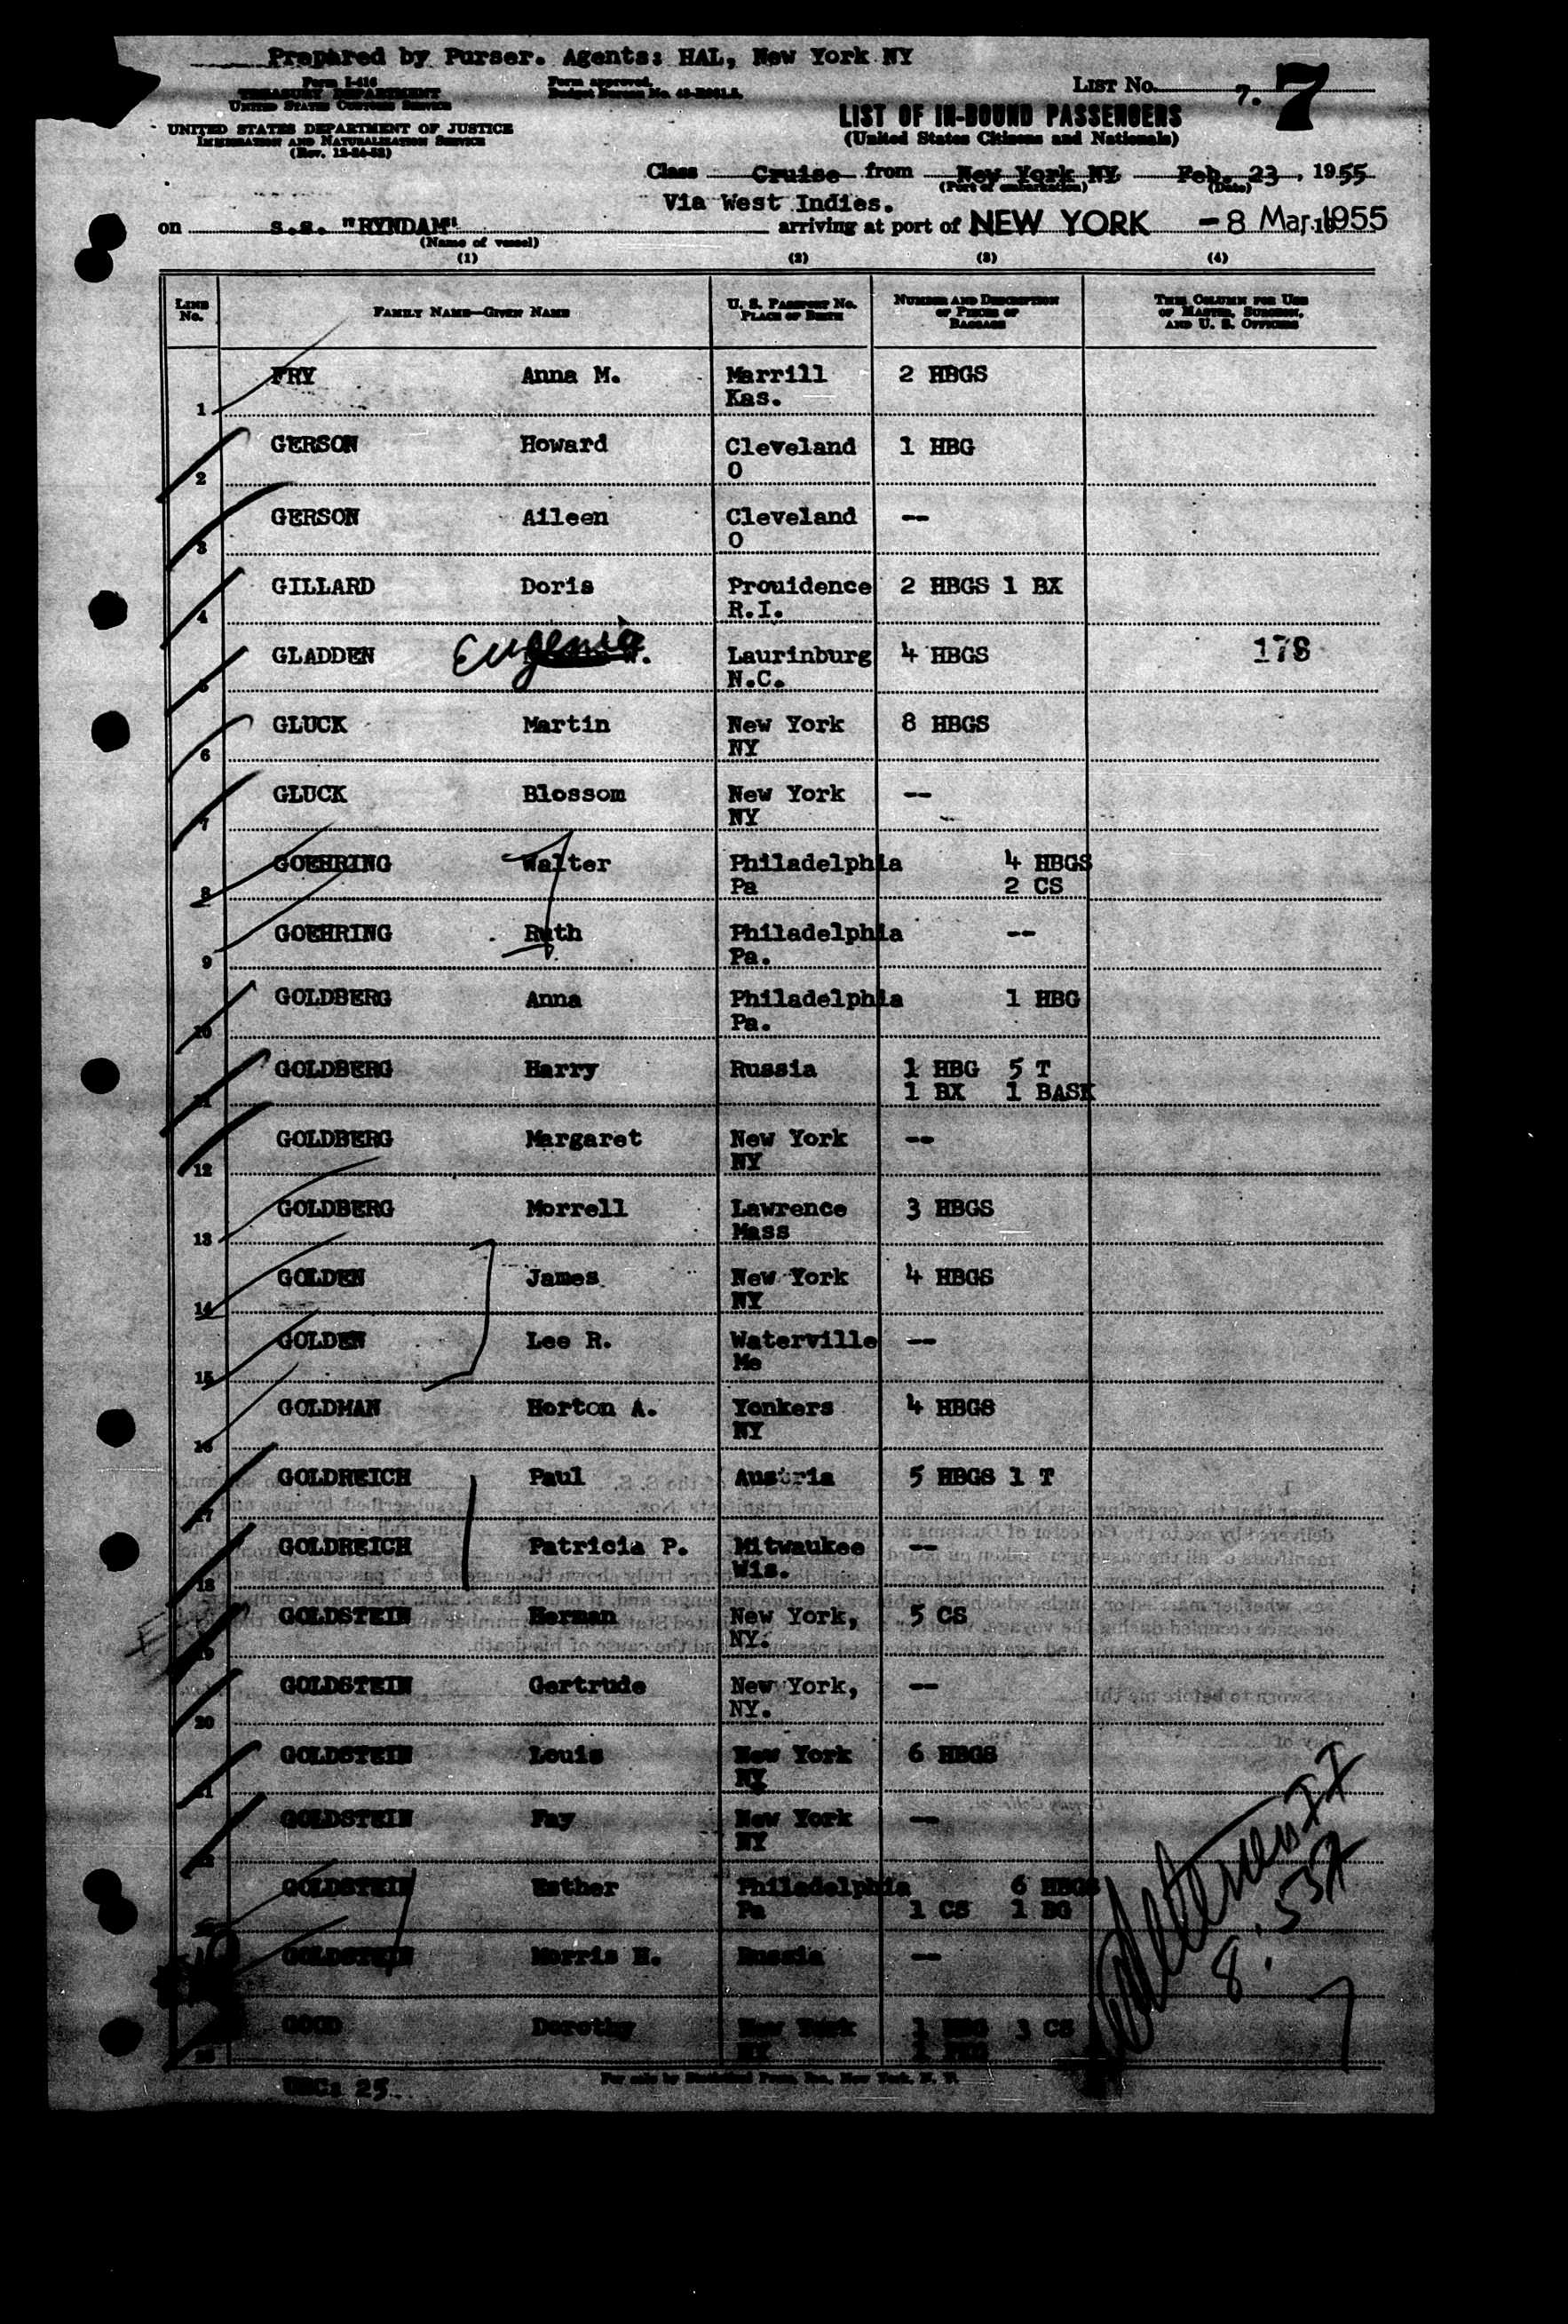 Prepared by Purser. Agents: HAL, New York NY
Form I-416
TREASURY DEPARTMENT
UNITED STATES CUSTOMS SERVICE
Form approved.
Budget Bureau No.
UNITED STATES DEPARTMENT OF JUSTICE
IMMIGRATION AND NATURALIZATION SERVICE
(Rev. 12-24-52)
LIST No. 7. 7
LIST OF IN-BOUND PASSENGERS
(United States Citizens and Nationals)
Class Cruise from New York NY, Feb. 23, 1955
(Port of embarkation) (Date)
Via West Indies.
on s.s. "RYNDAM" arriving at port of NEW YORK -8 Mar. 1955
(Name of vessel)
(1) (2) (3) (4)
LINE No. FAMILY NAME—GIVEN NAME U. S. PASSPORT No. PLACE OF BIRTH NUMBER AND DESCRIPTION OF PIECES OF BAGGAGE THIS COLUMN FOR USE OF MASTER, SURGEON, AND U. S. OFFICERS
1 FRY Anna M. Marrill Kas. 2 HBGS
2 GERSON Howard Cleveland O 1 HBG
3 GERSON Aileen Cleveland O --
4 GILLARD Doris Prouidence R.I. 2 HBGS 1 BX
5 GLADDEN Eugenia Laurinburg N.C. 4 HBGS 178
6 GLUCK Martin New York NY 8 HBGS
7 GLUCK Blossom New York NY --
8 GOEHRING Walter Philadelphia Pa 4 HBGS 2 CS
9 GOEHRING Ruth Philadelphia Pa. --
10 GOLDBERG Anna Philadelphia Pa. 1 HBG
11 GOLDBERG Harry Russia 1 HBG 5 T 1 BX 1 BASK
12 GOLDBERG Margaret New York NY --
13 GOLDBERG Morrell Lawrence Mass 3 HBGS
14 GOLDEN James New York NY 4 HBGS
15 GOLDEN Lee R. Waterville Me --
16 GOLDMAN Horton A. Yonkers NY 4 HBGS
17 GOLDREICH Paul Austria 5 HBGS 1 T
18 GOLDREICH Patricia P. Mitwaukee Wis. --
19 GOLDSTEIN Herman New York, NY. 5 CS
20 GOLDSTEIN Gertrude New York, NY. --
21 GOLDSTEIN Louis New York NY 6 HBGS
22 GOLDSTEIN Fay New York NY --
GOLDSTEIN Esther Philadelphia Pa 6 HBGS 1 CS 1 BG
GOLDSTEIN Morris H. Russia --
25 GOOD Dorothy New York NY 1 HBG 3 CS 1 PKG
USC: 25